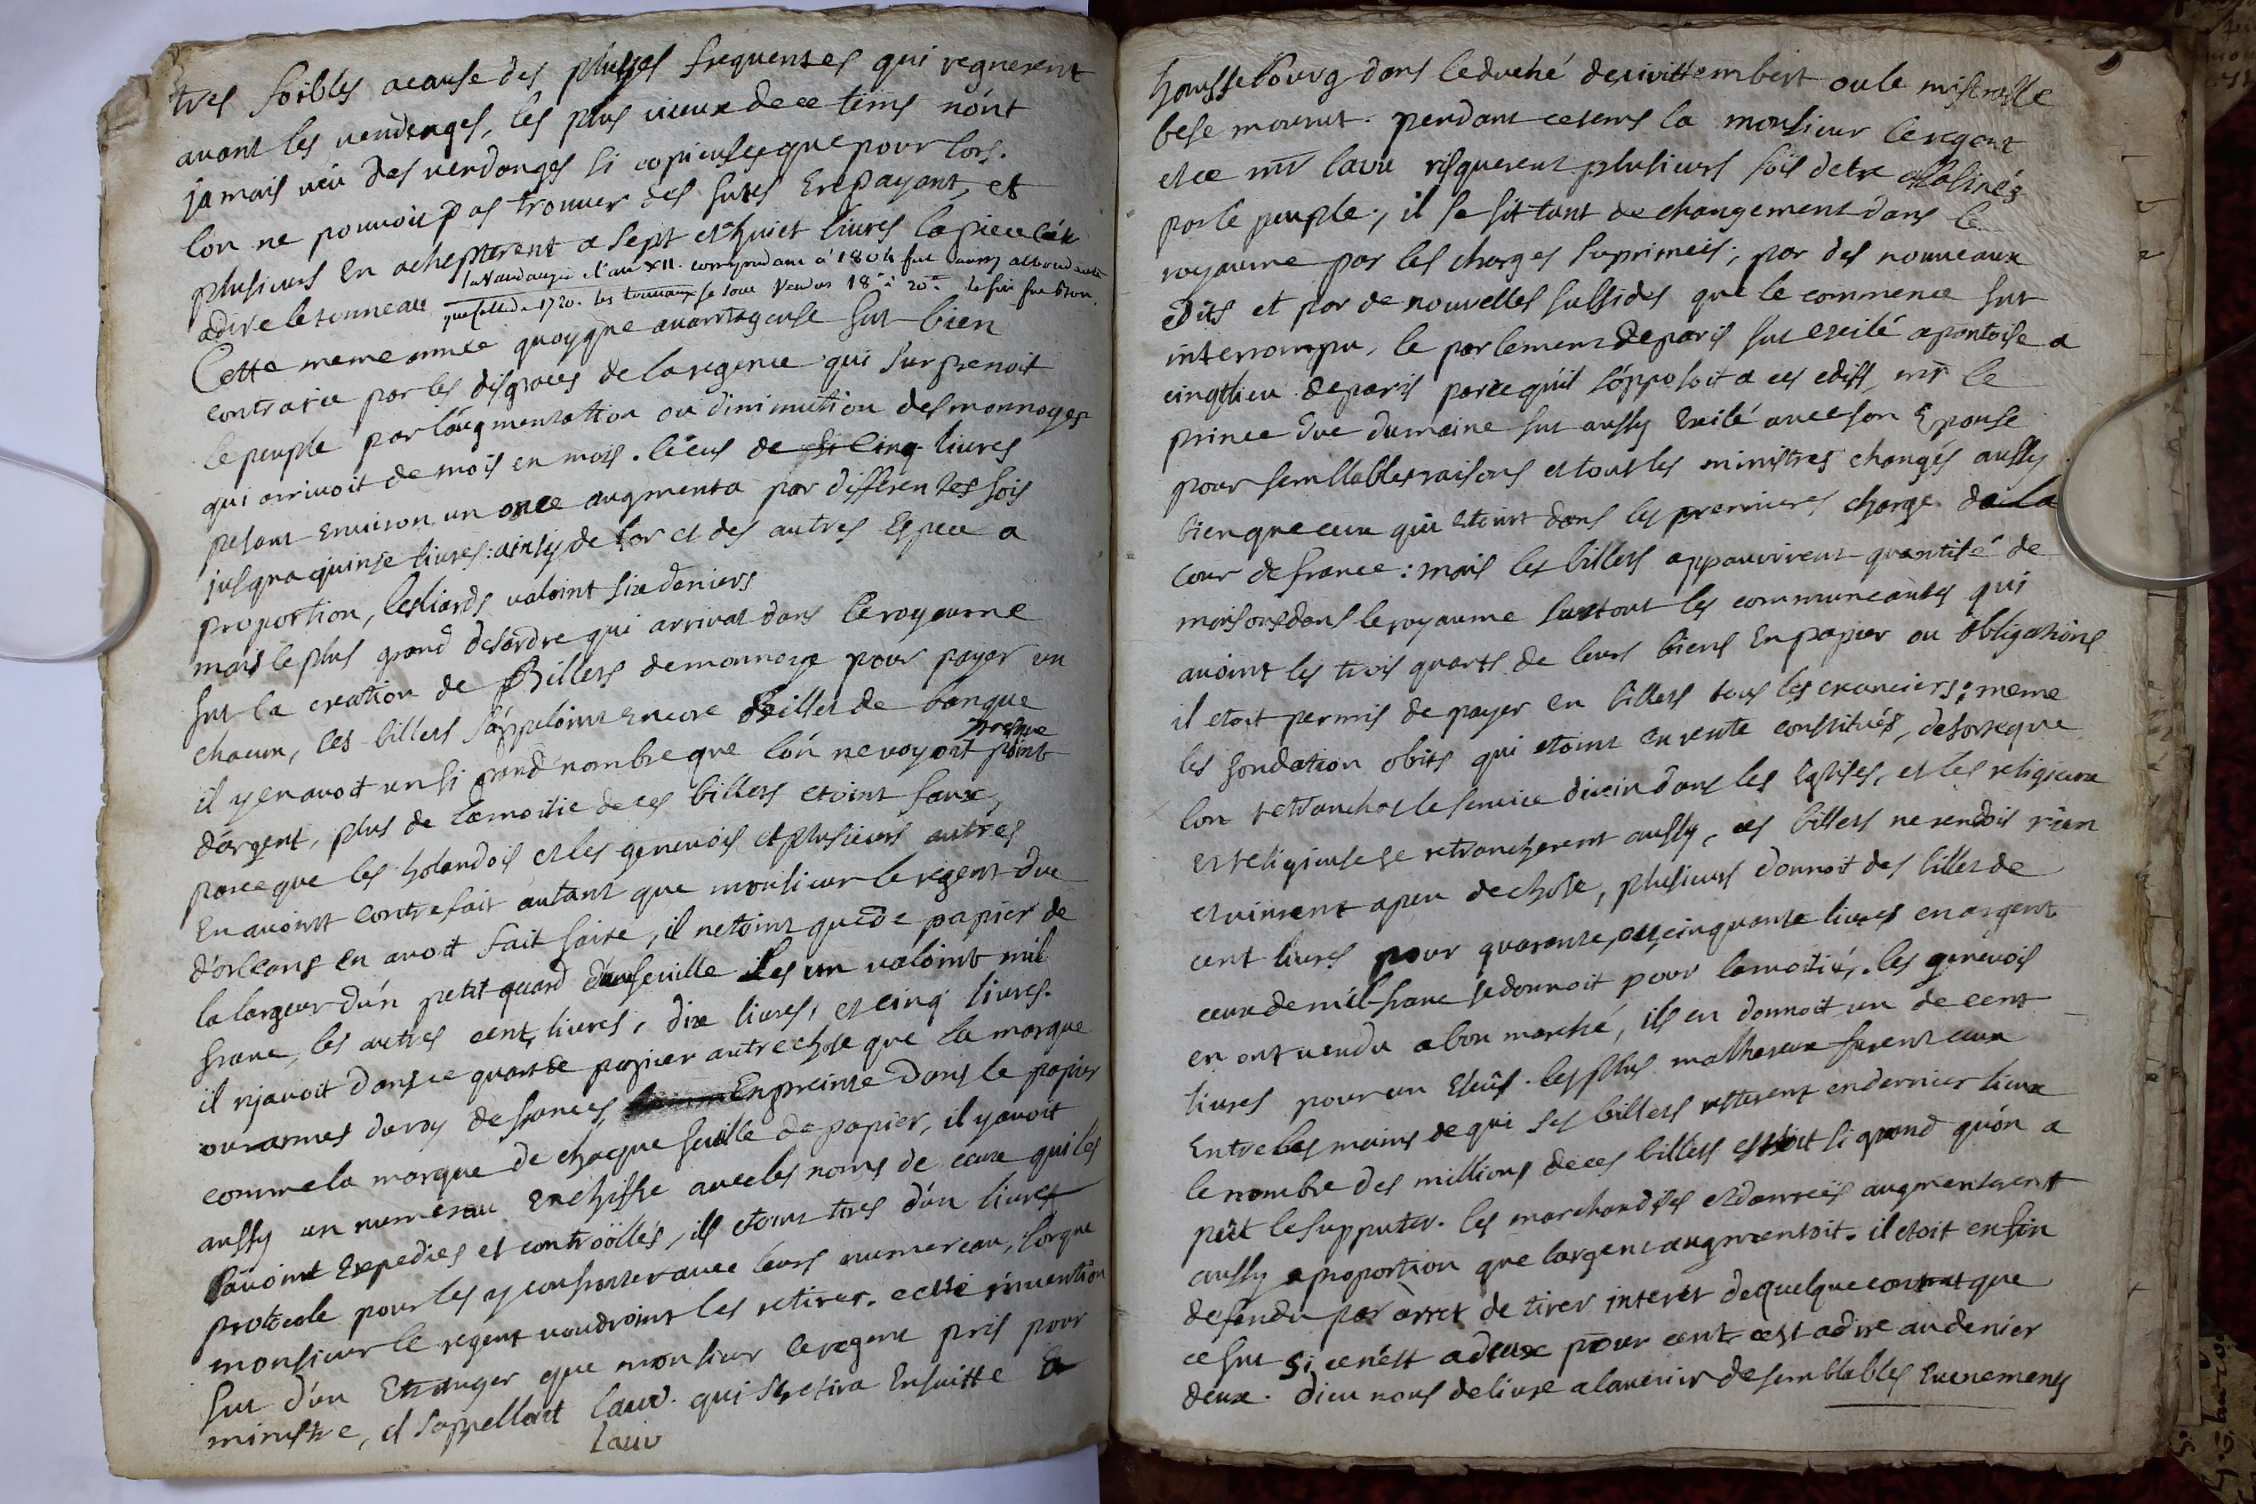 tres foibles acause des pluyes frequentes qui regnerent
avant les vendenges, les plus vieux de ce tems n'ont
jamais veu des vendanges si copieuses que pour lors.
lon ne pouvoit pas trouver des futes En payant, et
plusieurs en acheptterent a sept et huict livres la piece c'ést
adire le tonneau
la Vandange de l'an XII. correspondant à 1804 fut aussy abbondante
que celle de 1720. les tonneaux se sont Vendus 18 à 20 le vin fut bon.
Cette meme année quoyque avantageuse fut bien
contraire par les disgraces de la regence qui surprenoit
le peuple par l'augmentation ou diminution des monnoyes
qui arrivoit de mois en mois. l'écus de cinq livres
pesant Environ un once augmenta par differentes fois
jusqua quinse livres: ainsy de l'or et des autres Espece a
proportion, les liards valoint six deniers
mais le plus grand desordre qui arrivat dans le royaume
fut la creation de Billets de monnoye pour payer un
chacun, ces billets s'appeloint encore Billet de banque
il y en avoit un si grand nombre que l'on ne voyoit presque point
d'argent, plus de la moitie de ces billets etoint faux,
parce que les holandois et les genevois et plusieurs autres
En avoint contrefait autant que monsieur le regent duc
d'orleans en avoit fait faire, il netoint que de papier de
la largeur d'un petit quard d'une feuille les un valoint mil
franc, les autres cent livres, dix livres, et cinq livres.
il n'javoit dans ce quart de papier autre chose que la marque
ou armes du roy de frances, Enpreinte dans le papier
comme la marque de chaque feuille de papier, il y avoit
aussy un numerau en chiffre avec les noms de ceux qui les
avoint Expedies et controollés, ils etoint tires d'un livret
protocole pour les y confronter avec leurs numereau, lorque
monsieur le regent voudroint les retirer. cette invention
fut d'un Etranger que monsieur le regent prit pour
ministre, il s'appelloit lauv. qui se retira Ensuitte a
lauv
haussebourg dans le duché de wittembert ou le
bese mourut. pendant ce tems la monsieur le regent
et ce mr lauv risquerent plusieurs fois detre assasinés
par le peuple., il se fit tant de changement dans le
royaume par les charges suprimeés; par des nouveaux
edits et par de nouvelles subsides que le commerce fut
interrompu, le parlement de paris fut exilé a pontoise a
cinq lieu de paris parce qu'il s'opposoit a ces edits, mr le
prince duc dumaine fut aussy Exilé avec son Epouse
pour semblables raisons et tout les ministres changés aussy
bien que ceux qui etoint dans les premiers charge de la
cour de france: mais les billets appauvrirent quantité de
maisons dans le royaume surtout les communeautes qui
avoint les trois quarts de leurs biens En papier ou obligations
il etoit permis de payer en billets tous les creanciers; meme
les fondation obits qui etoint en rente constitués, de sorte que
lon retranchat le service divin dans les Eglises, et les religieux
et religieuses se retrancherent aussy, ces billets ne rendois rien
et vinrent a peu de chose, plusieurs donnoit des billet de
cent livres pour quarente, ou cinquante livres en argent
ceux de mil franc se donnoit pour la moitié, les genevois
en ont vendu a bon marché, ils en donnoit un de cent
livres pour un Ecus. les plus malheureux furent ceux
Entre les mains de qui ses billets resterent en dernier lieux
le nombre des millions de ces billets estoit si grand qu'on a
peut le supputer. les marchandises et danreés augmenterent
aussy a proportion que largent augmentoit. il etoit enfin
defendu par arret de tirer interet de quelque contrat que
ce fut si ce n'ést a deux pour cent c'est adire au denier
deux. dieu nous delivre alavenir de semblables Evenements